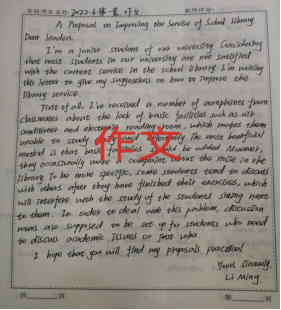 实验项目名称: 2022.6 第一套 作文 教师评分:
A Proposal on Improving the Service of School Library
Dear leaders,
I'm a junior student of our university. Considering
that most students in our university are not satisfied
with the current service in the school library, I'm writing
this letter to give my suggestions on how to improve the
library service.
First of all, I've received a number of complaints from
classmates about the lack of basic facilities such as air
conditioner and reading room, which makes them
unable to study The most beneficial
method is that basic facilities should be added. Moreover,
they occasionally make a complaint about the noise in the
library. To be more specific, some students tend to discuss
with others after they have finished their exercises, which
will interfere with the study of the students sitting next
to them. In order to deal with this problem, discussion
rooms are supposed to be set up for students who need
to discuss academic issues or just relax.
I hope that you will find my proposals practical.
Yours sincerely,
Li Ming
作文
共 页 第 页